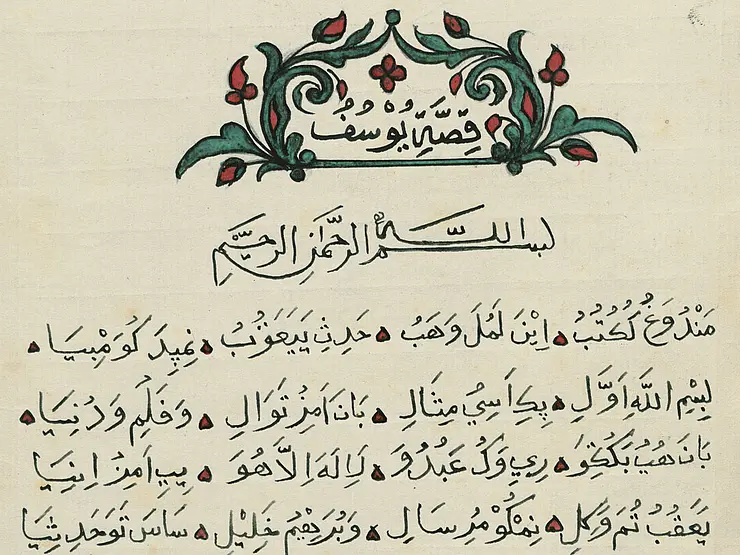 قِصَّةِ يُوْسُفُ
بسم الله الرَّحْمَٰنِ الرحيمِ
مَنْدُوغُ كُتُبُ اِيْنَ لَمُلَ وَهَبُ حَدِثِ يَيَعَقُوْبُ نِمِپِدَ كُوَمْبِيَا
لِبِسْمِ اللَّهِ اَوَّلِ پِكِ اَسِيُ مِثَالِ بَانَ اَمِزِ تَوَالِ وَفَلَمِ وَدُنِيَا
بَانَ هُبُ رِي وَكُ عَبُدُوَ لَا اِلَهَ اِلَّا هُوَ پِپِ اَمِزِ اِنِيَا
يَعَقُبُ تُمَ وَكِلِ نِمْكُوْ مُرْسَالِ وَبُرَهِيْمُ خَلِيْلِ سَاسَ تَوَحَدِثِيَا